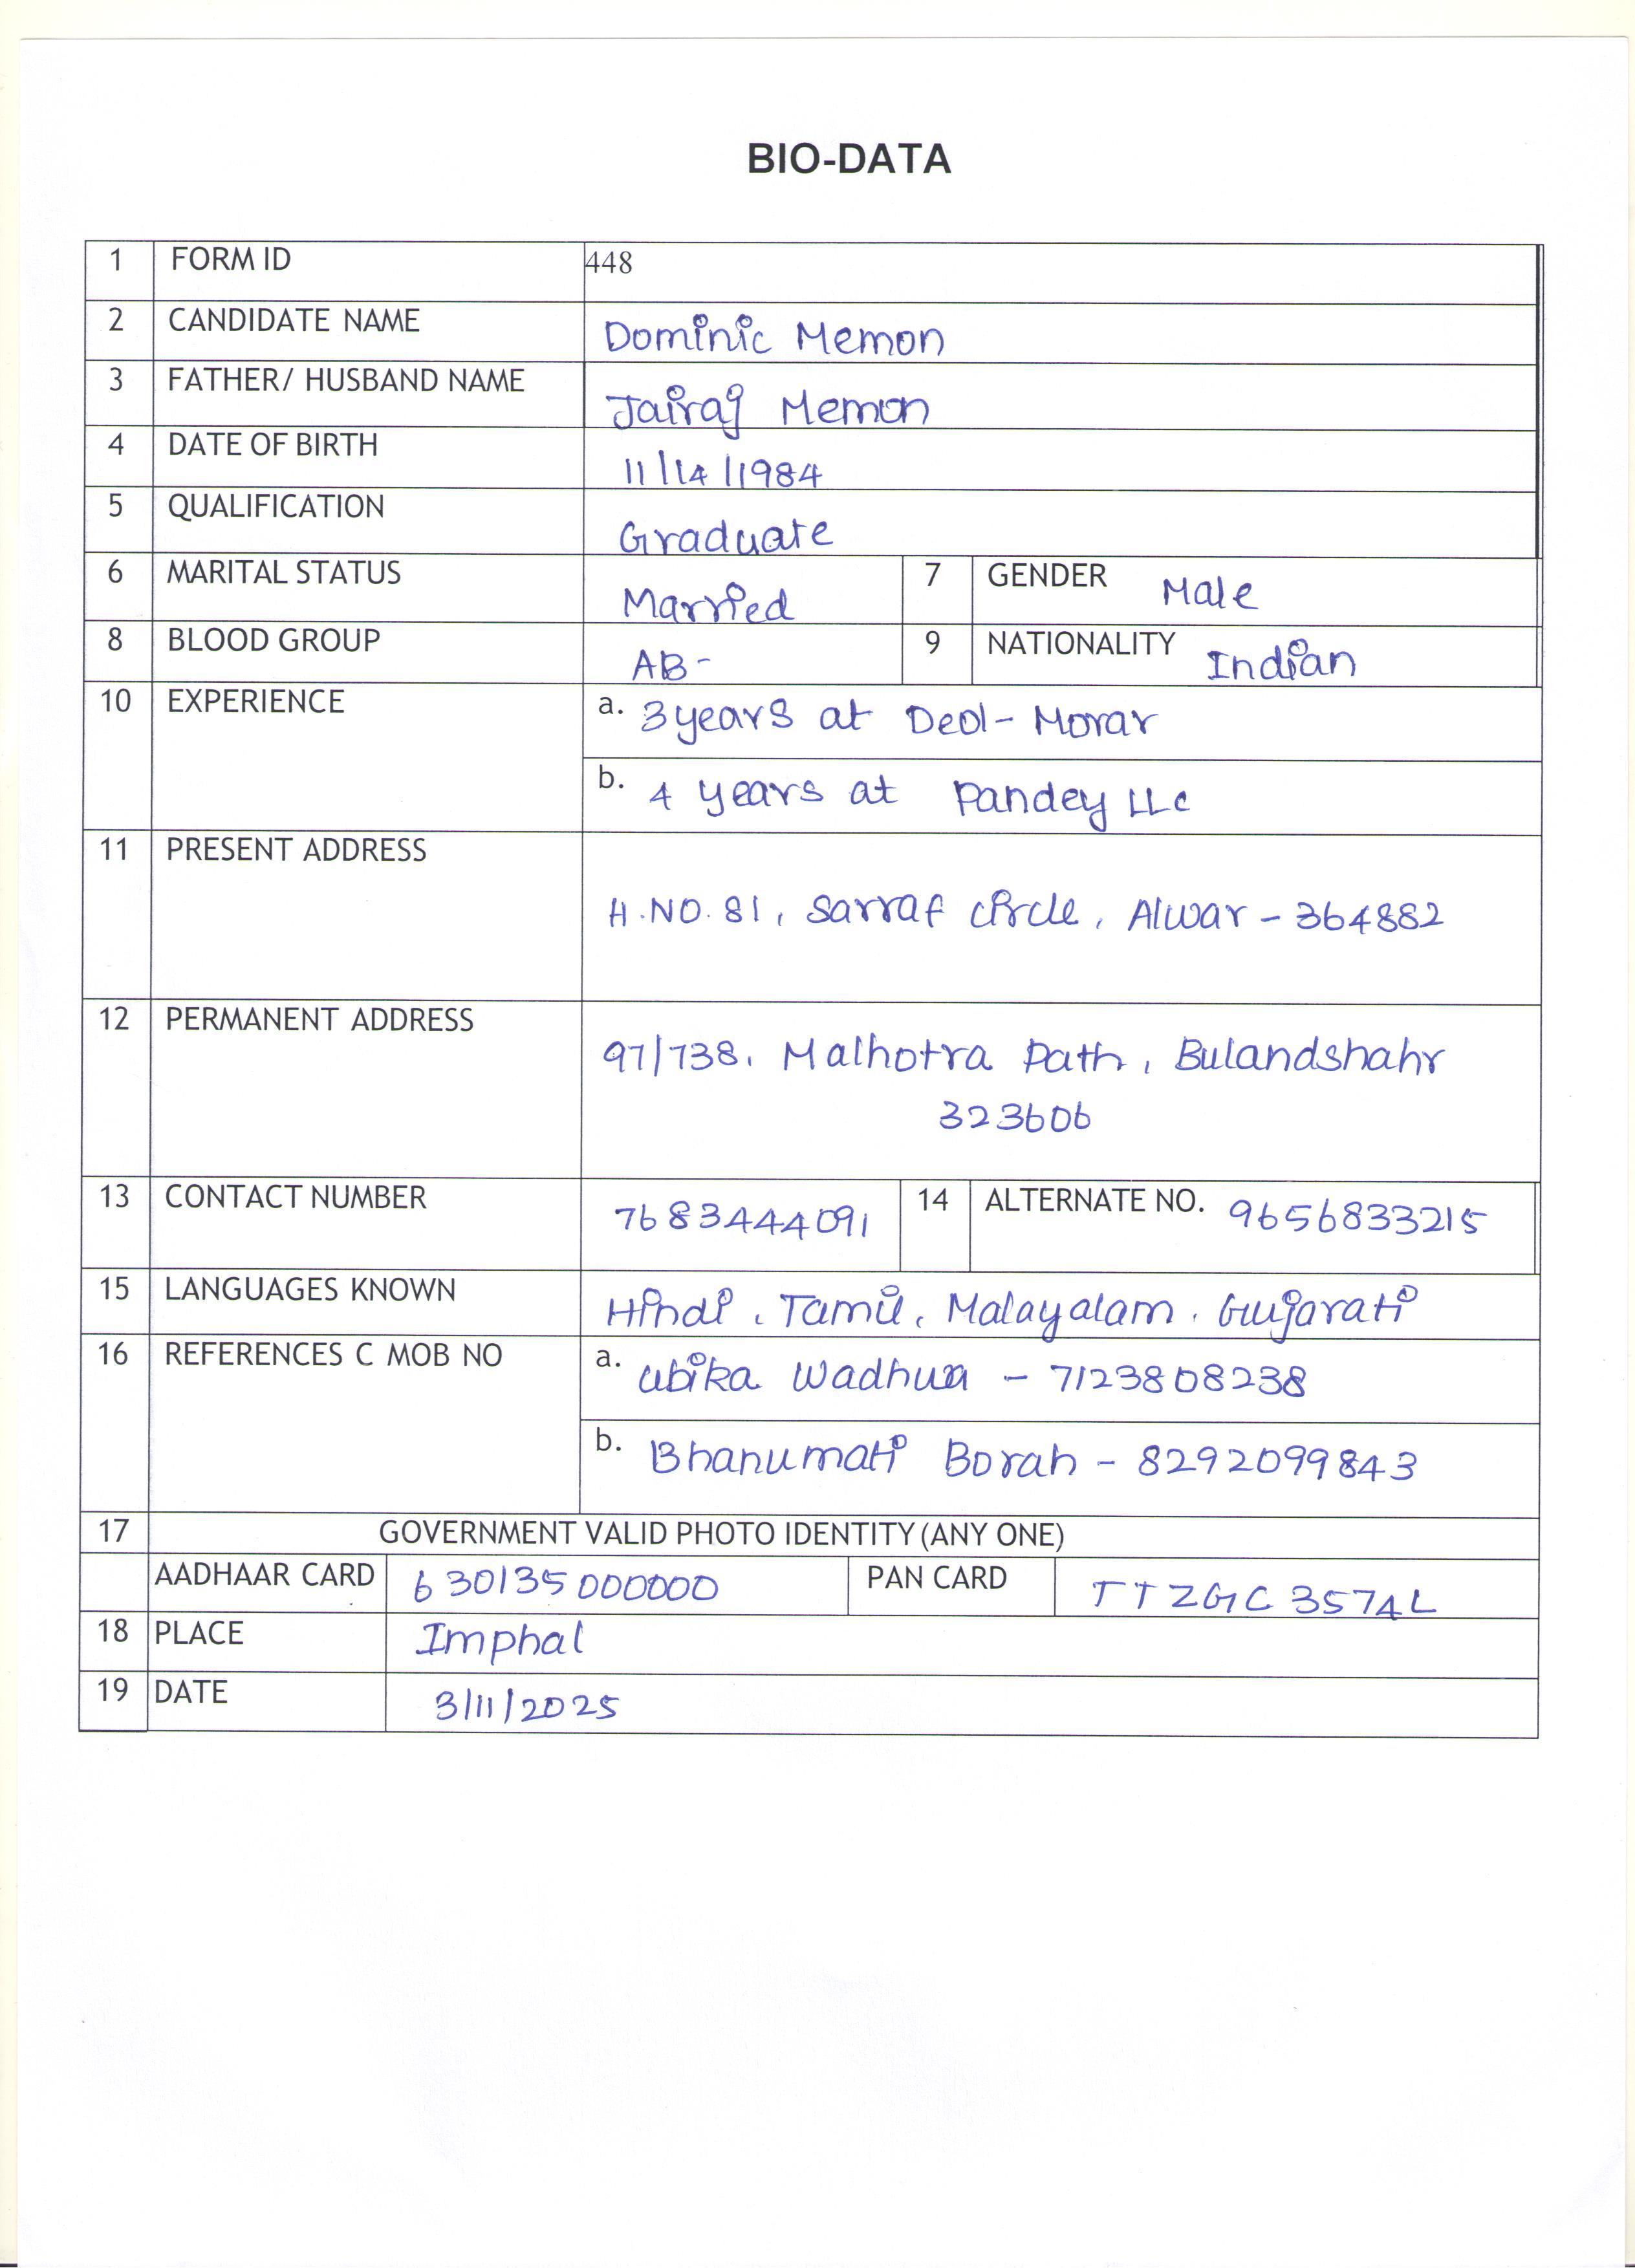 BIO-DATA
1 FORM ID 448
2 CANDIDATE NAME Dominic Memon
3 FATHER/ HUSBAND NAME Jairaj Memon
4 DATE OF BIRTH 11/14/1984
5 QUALIFICATION Graduate
6 MARITAL STATUS Married 7 GENDER Male
8 BLOOD GROUP AB- 9 NATIONALITY Indian
10 EXPERIENCE a. 3 years at Deol-Morar
b. 4 years at Pandey LLc
11 PRESENT ADDRESS
H.NO. 81, Sarraf circle, Alwar - 364882
12 PERMANENT ADDRESS
97/738, Malhotra Path, Bulandshahr
323606
13 CONTACT NUMBER 7683444091 14 ALTERNATE NO. 9656833215
15 LANGUAGES KNOWN Hindi, Tamil, Malayalam, Gujarati
16 REFERENCES C MOB NO a. Wadhwa - 7123808238
b. Bhanumati Borah - 8292099843
17 GOVERNMENT VALID PHOTO IDENTITY (ANY ONE)
AADHAAR CARD 630135000000 PAN CARD TTZGC3574L
18 PLACE Imphal
19 DATE 3/11/2025